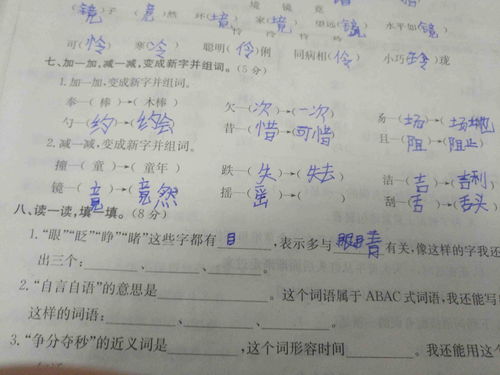 镜 境 竟
(镜)子 (竟)然 环(境) 家(境) 望远(镜) 水平如(镜)
怜 冷 伶 伶 玲
可(怜) 寒(冷) 聪明(伶)俐 同病相(伶) 小巧(玲)珑
七、加一加,减一减,变成新字并组词。(5分)
1.加一加,变成新字并组词。
奉—(棒)→(木棒) 欠—(次)→(一次) 昜—(场)→(场地)
勺—(约)→(约会) 昔—(惜)→(可惜) 且—(阻)→(阻止)
2.减一减,变成新字并组词。
撞—(童)→(童年) 跌—(失)→(失去) 洁—(吉)→(吉利)
镜—(竟)→(竟然) 摇—(䍃)→( ) 刮—(舌)→(舌头)
八、读一读,填一填。(8分)
1.“眼”“眨”“睁”“睹”这些字都有目,表示多与眼睛有关,像这样的字我还
出三个:______、______、______。
2.“自言自语”的意思是__________。这个词语属于ABAC式词语,我还能写
这样的词语:______、______、______。
3.“争分夺秒”的近义词是________,这个词形容时间________。我还能用这个